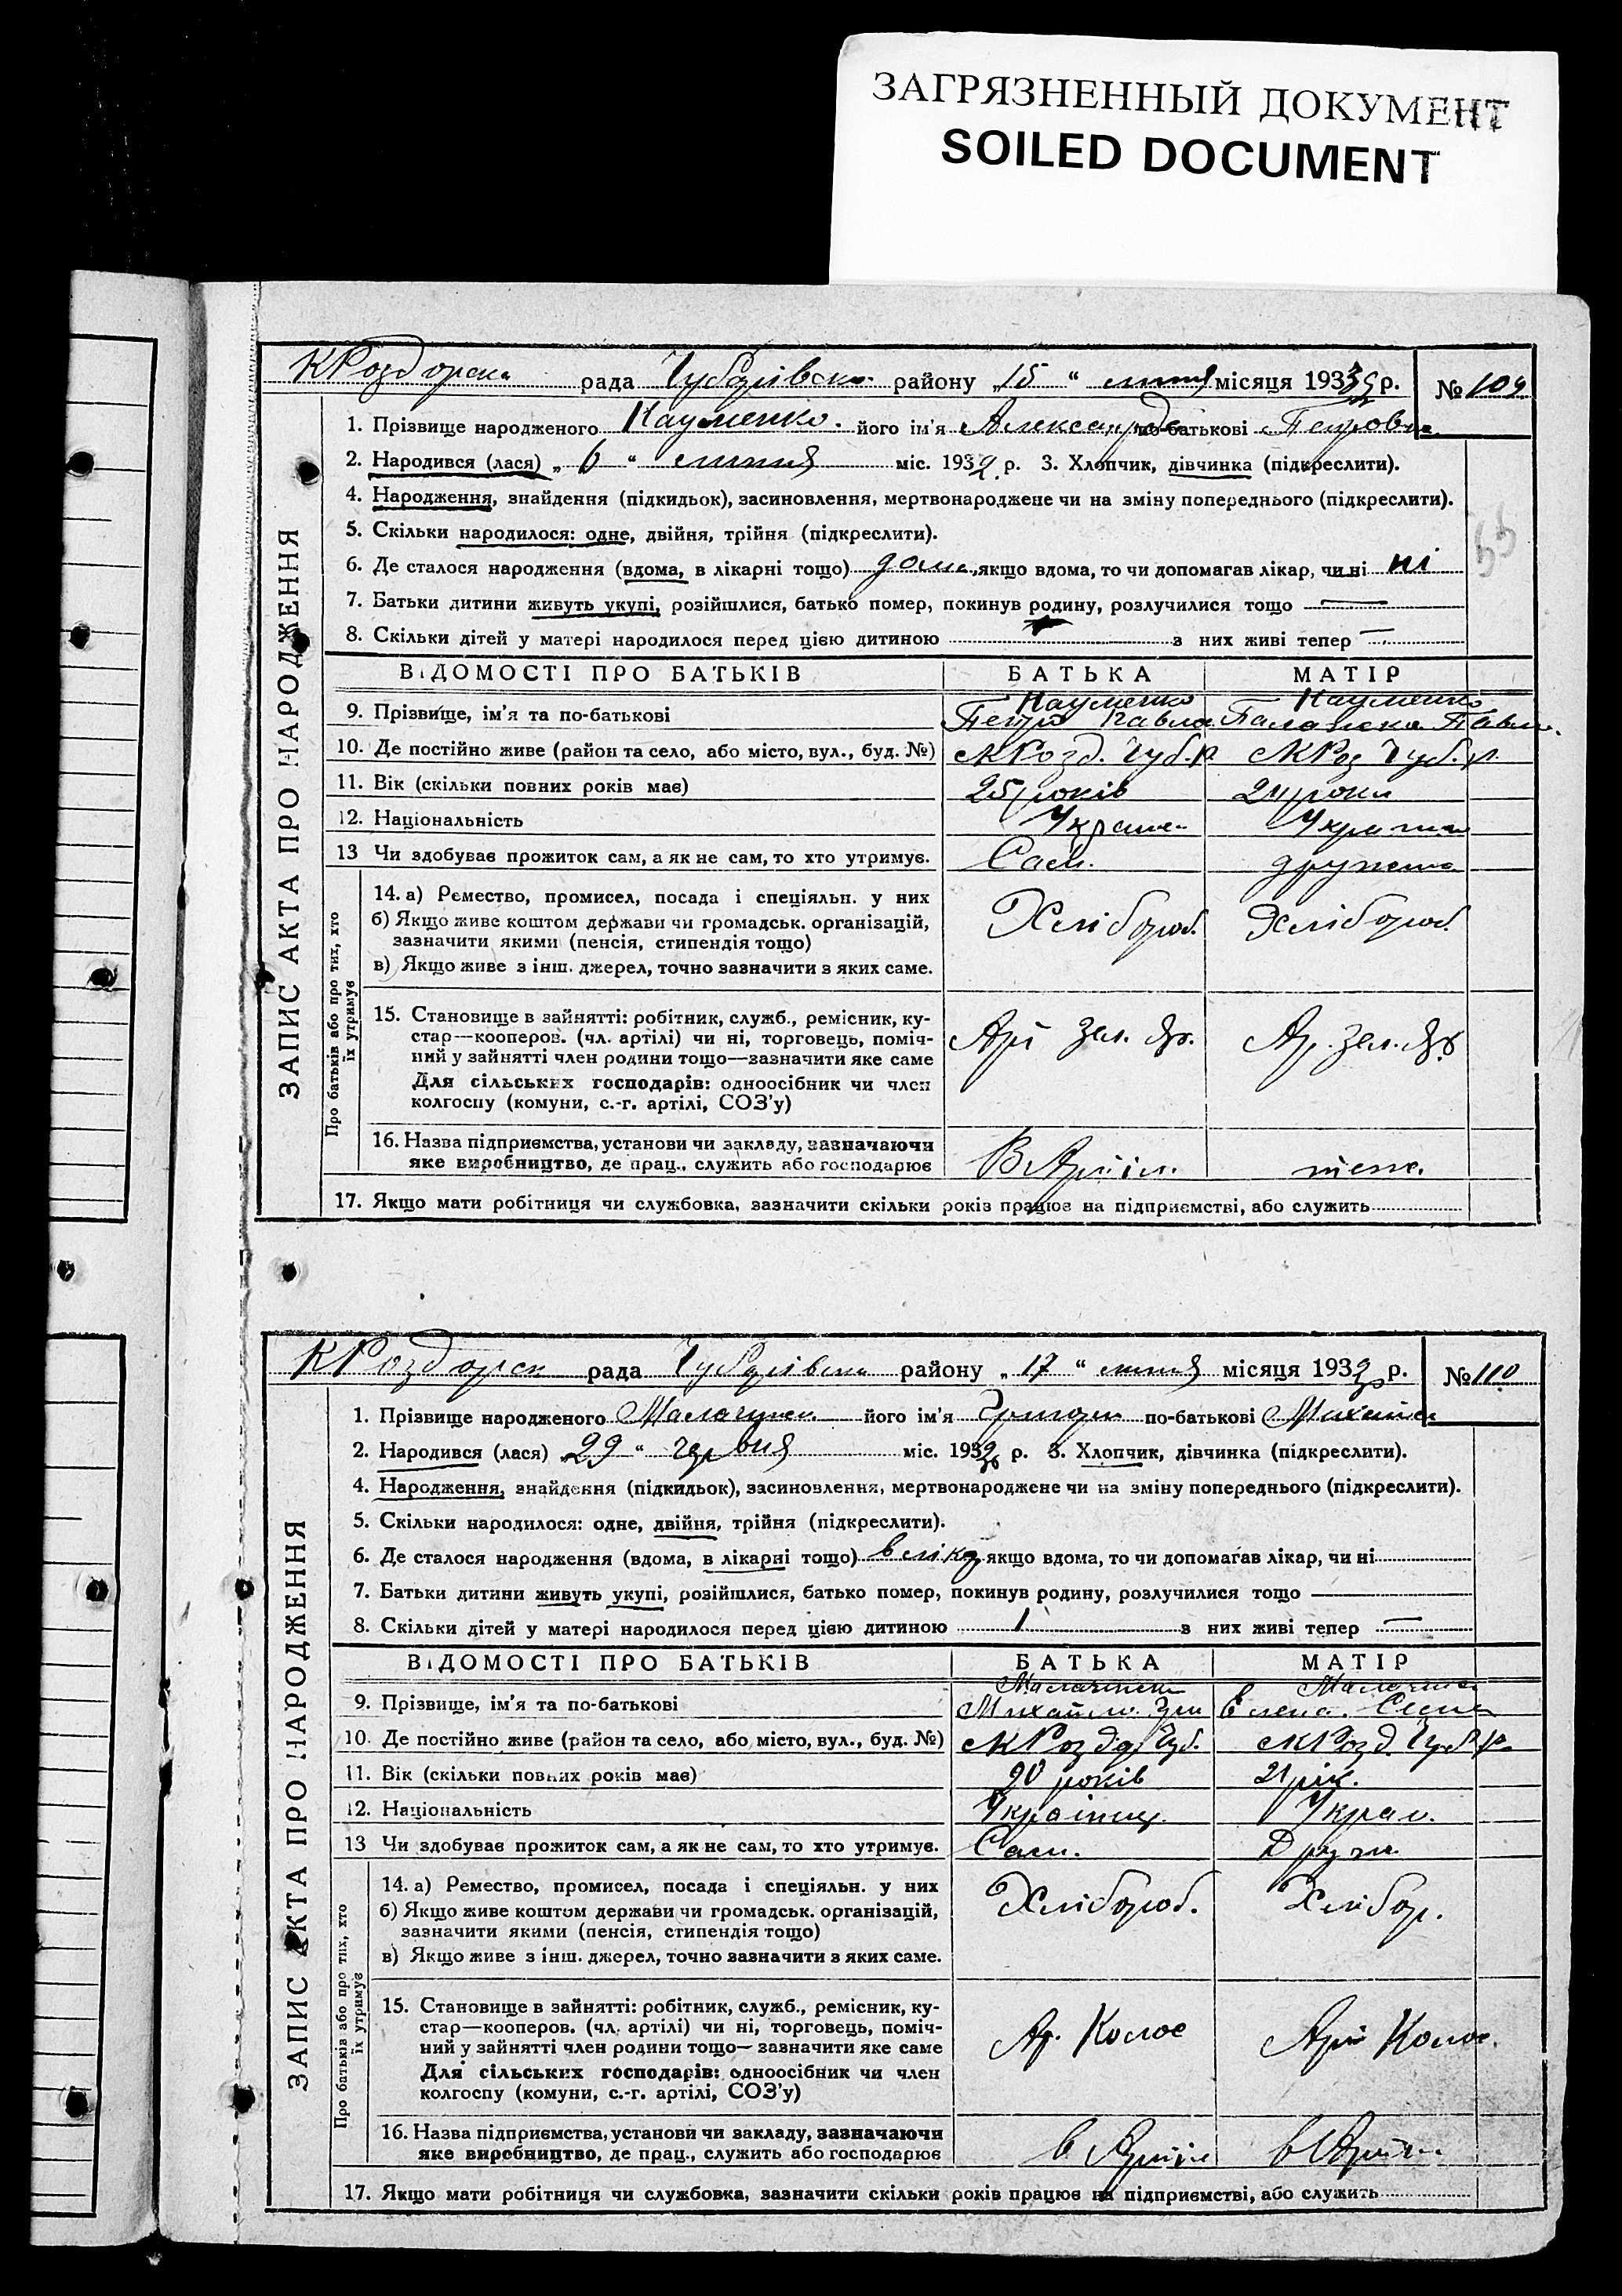 ЗАГРЯЗНЕННЫЙ ДОКУМЕНТ
SOILED DOCUMENT
рада району „15“ липня місяця 193 р. № 109
ЗАПИС АКТА ПРО НАРОДЖЕННЯ
1. Прізвище народженого Науменко його ім'я Александра по-батькові Петровна
2. Народився (лася) „6“ липня міс. 1932 р. 3. Хлопчик, дівчинка (підкреслити).
4. Народження, знайдення (підкидьок), засиновлення, мертвонароджене чи на зміну попереднього (підкреслити).
5. Скільки народилося: одне, двійня, трійня (підкреслити).
6. Де сталося народження (вдома, в лікарні тощо) якщо вдома, то чи допомагав лікар, чи ні ні
7. Батьки дитини живуть укупі, розійшлися, батько помер, покинув родину, розлучилися тощо —
8. Скільки дітей у матері народилося перед цією дитиною з них живі тепер —
ВІДОМОСТІ ПРО БАТЬКІВ БАТЬКА МАТІР
Науменко Науменко
9. Прізвище, ім'я та по-батькові Петро Павло
10. Де постійно живе (район та село, або місто, вул., буд. №)
11. Вік (скільки повних років має) 25 років 24 роки
12. Національність
13 Чи здобуває прожиток сам, а як не сам, то хто утримує. Сам.
Про батьків або про тих, хто їх утримує
14. а) Ремество, промисел, посада і спеціяльн. у них Хлібороб. Хлібороб.
б) Якщо живе коштом держави чи громадськ. організацій,
зазначити якими (пенсія, стипендія тощо)
в) Якщо живе з інш. джерел, точно зазначити з яких саме.
15. Становище в зайнятті: робітник, служб., ремісник, ку-
стар—кооперов. (чл. артілі) чи ні, торговець, поміч-
ний у зайнятті член родини тощо—зазначити яке саме
Для сільських господарів: одноосібник чи член
колгоспу (комуни, с.-г. артілі, СОЗ'у)
16. Назва підприємства, установи чи закладу, зазначаючи
яке виробництво, де прац., служить або господарює
17. Якщо мати робітниця чи службовка, зазначити скільки років працює на підприємстві, або служить
рада району „17“ липня місяця 193 р. № 110
ЗАПИС АКТА ПРО НАРОДЖЕННЯ
1. Прізвище народженого його ім'я по-батькові
2. Народився (лася) „29“ червня міс. 193 р. 3. Хлопчик, дівчинка (підкреслити).
4. Народження, знайдення (підкидьок), засиновлення, мертвонароджене чи на зміну попереднього (підкреслити).
5. Скільки народилося: одне, двійня, трійня (підкреслити).
6. Де сталося народження (вдома, в лікарні тощо) якщо вдома, то чи допомагав лікар, чи ні
7. Батьки дитини живуть укупі, розійшлися, батько помер, покинув родину, розлучилися тощо —
8. Скільки дітей у матері народилося перед цією дитиною 1 з них живі тепер —
ВІДОМОСТІ ПРО БАТЬКІВ БАТЬКА МАТІР
9. Прізвище, ім'я та по-батькові Михайло
10. Де постійно живе (район та село, або місто, вул., буд. №)
11. Вік (скільки повних років має) 20 років 21 рік.
12. Національність
13 Чи здобуває прожиток сам, а як не сам, то хто утримує. Сам. Друж.
Про батьків або про тих, хто їх утримує
14. а) Ремество, промисел, посада і спеціяльн. у них Хлібороб. Хлібор.
б) Якщо живе коштом держави чи громадськ. організацій,
зазначити якими (пенсія, стипендія тощо)
в) Якщо живе з інш. джерел, точно зазначити з яких саме.
15. Становище в зайнятті: робітник, служб., ремісник, ку-
стар—кооперов. (чл. артілі) чи ні, торговець, поміч-
ний у зайнятті член родини тощо—зазначити яке саме
Ар. Колос
Для сільських господарів: одноосібник чи член
колгоспу (комуни, с.-г. артілі, СОЗ'у)
16. Назва підприємства, установи чи закладу, зазначаючи
яке виробництво, де прац., служить або господарює
17. Якщо мати робітниця чи службовка, зазначити скільки років працює на підприємстві, або служить